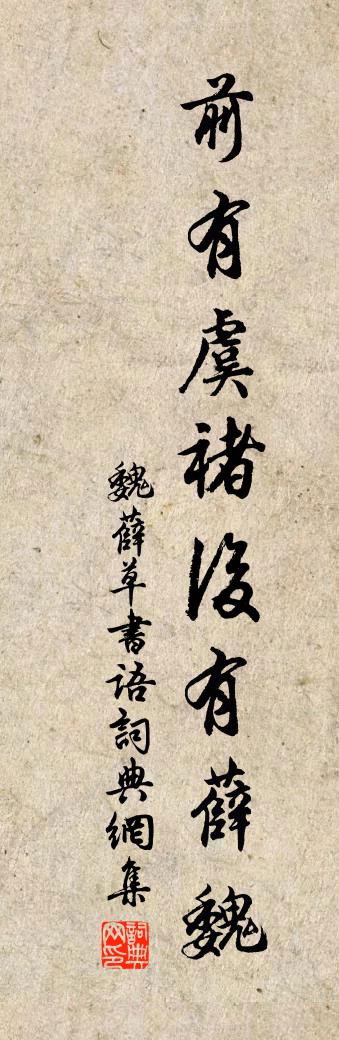 前有虞褚後有薛魏
魏薛草書語詞典網集
詞典网印